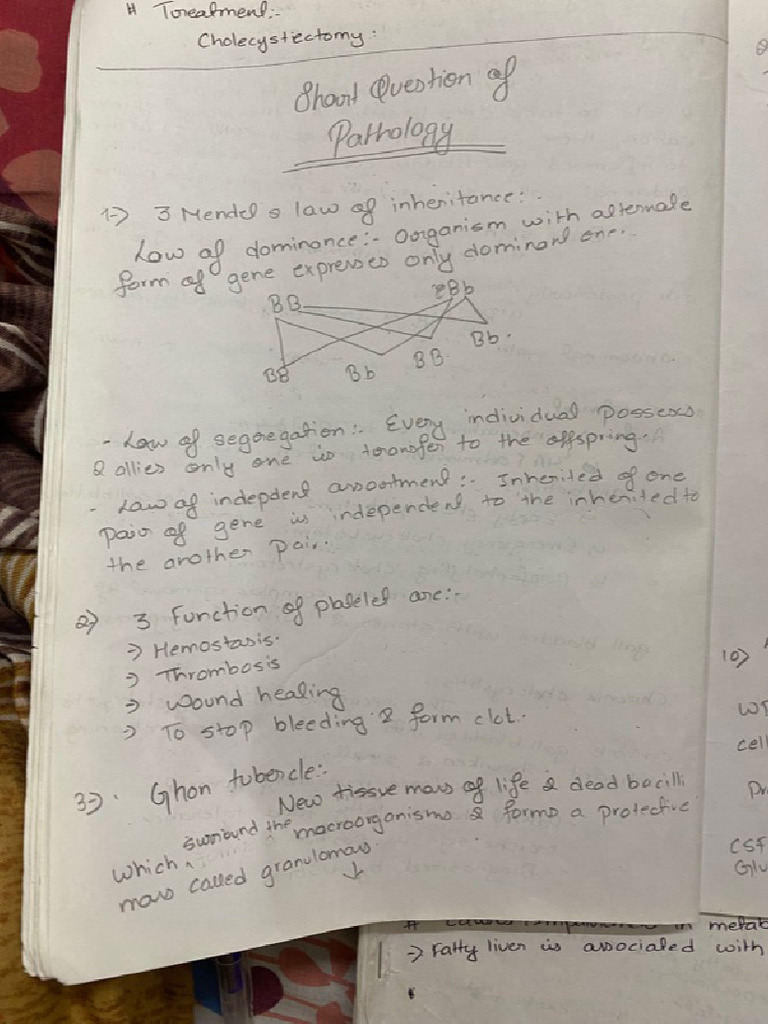 # Toreatment:-
Cholecystectomy:
Short Question of
Pathology
1-> 3 Mendel s law of inheritance:-
Low of dominance:- Oorganism with alternale
form of gene expresses only dominant one.
BB Bb
BB Bb BB Bb.
- Law of segoregation:- Every individual possess
2 allies only one is toransfer to the offspring.
- Law of indepdent assortment:- Inherited of one
pair of gene is independent to the inherited to
the another pair.
2) 3 Function of platelet are:-
-> Hemostasis.
-> Thrombosis
-> Wound healing
-> To stop bleeding & form clot.
3-> Ghon tubercle:-
New tissue mass of life & dead bacilli
which surround the macroorganisms & forms a protective
mass called granulomas.
↓
10)
cell
CSF
Glu
in metab
-> Fatty liver is associated with